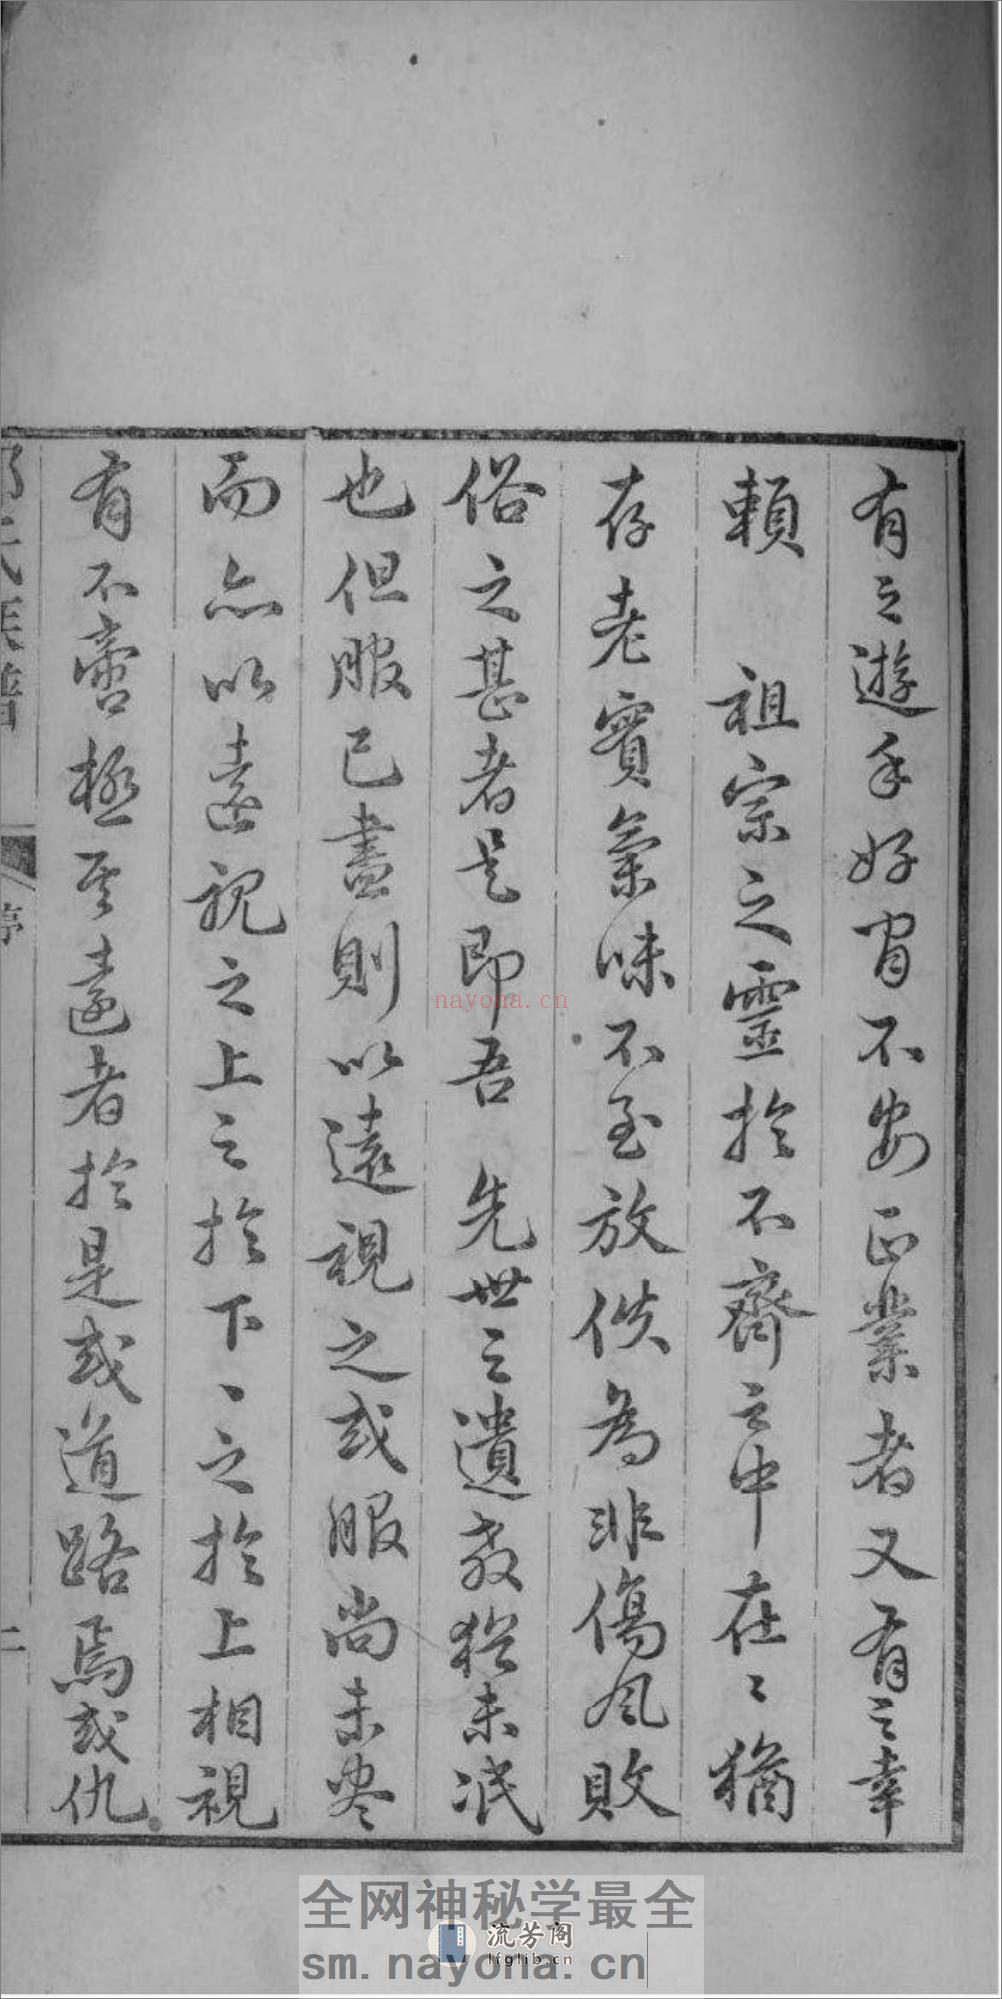 有之遊手好胃不安正業者又有之幸
賴　祖宗之靈於不齊之中在〻猶
存老實氣味不至放佚為非傷風敗
俗之甚者是即吾　先世之遺教猶未泯
也但服已盡則以遠視之或服尚未尽
而亦以遠視之上之於下〻之於上相視
有不啻極至遠者於是或道路焉或仇
氏族譜
序
nayona.cn
全网神秘学最全
流芳阁
lfglib.cn
sm.nayona.cn